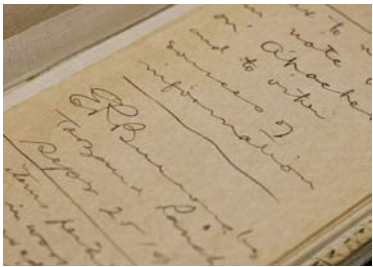 to
note
on Apaches
and to other
sources of
information
ERBurroughs
Tarzana Ranch
Sept 25 19
items
in